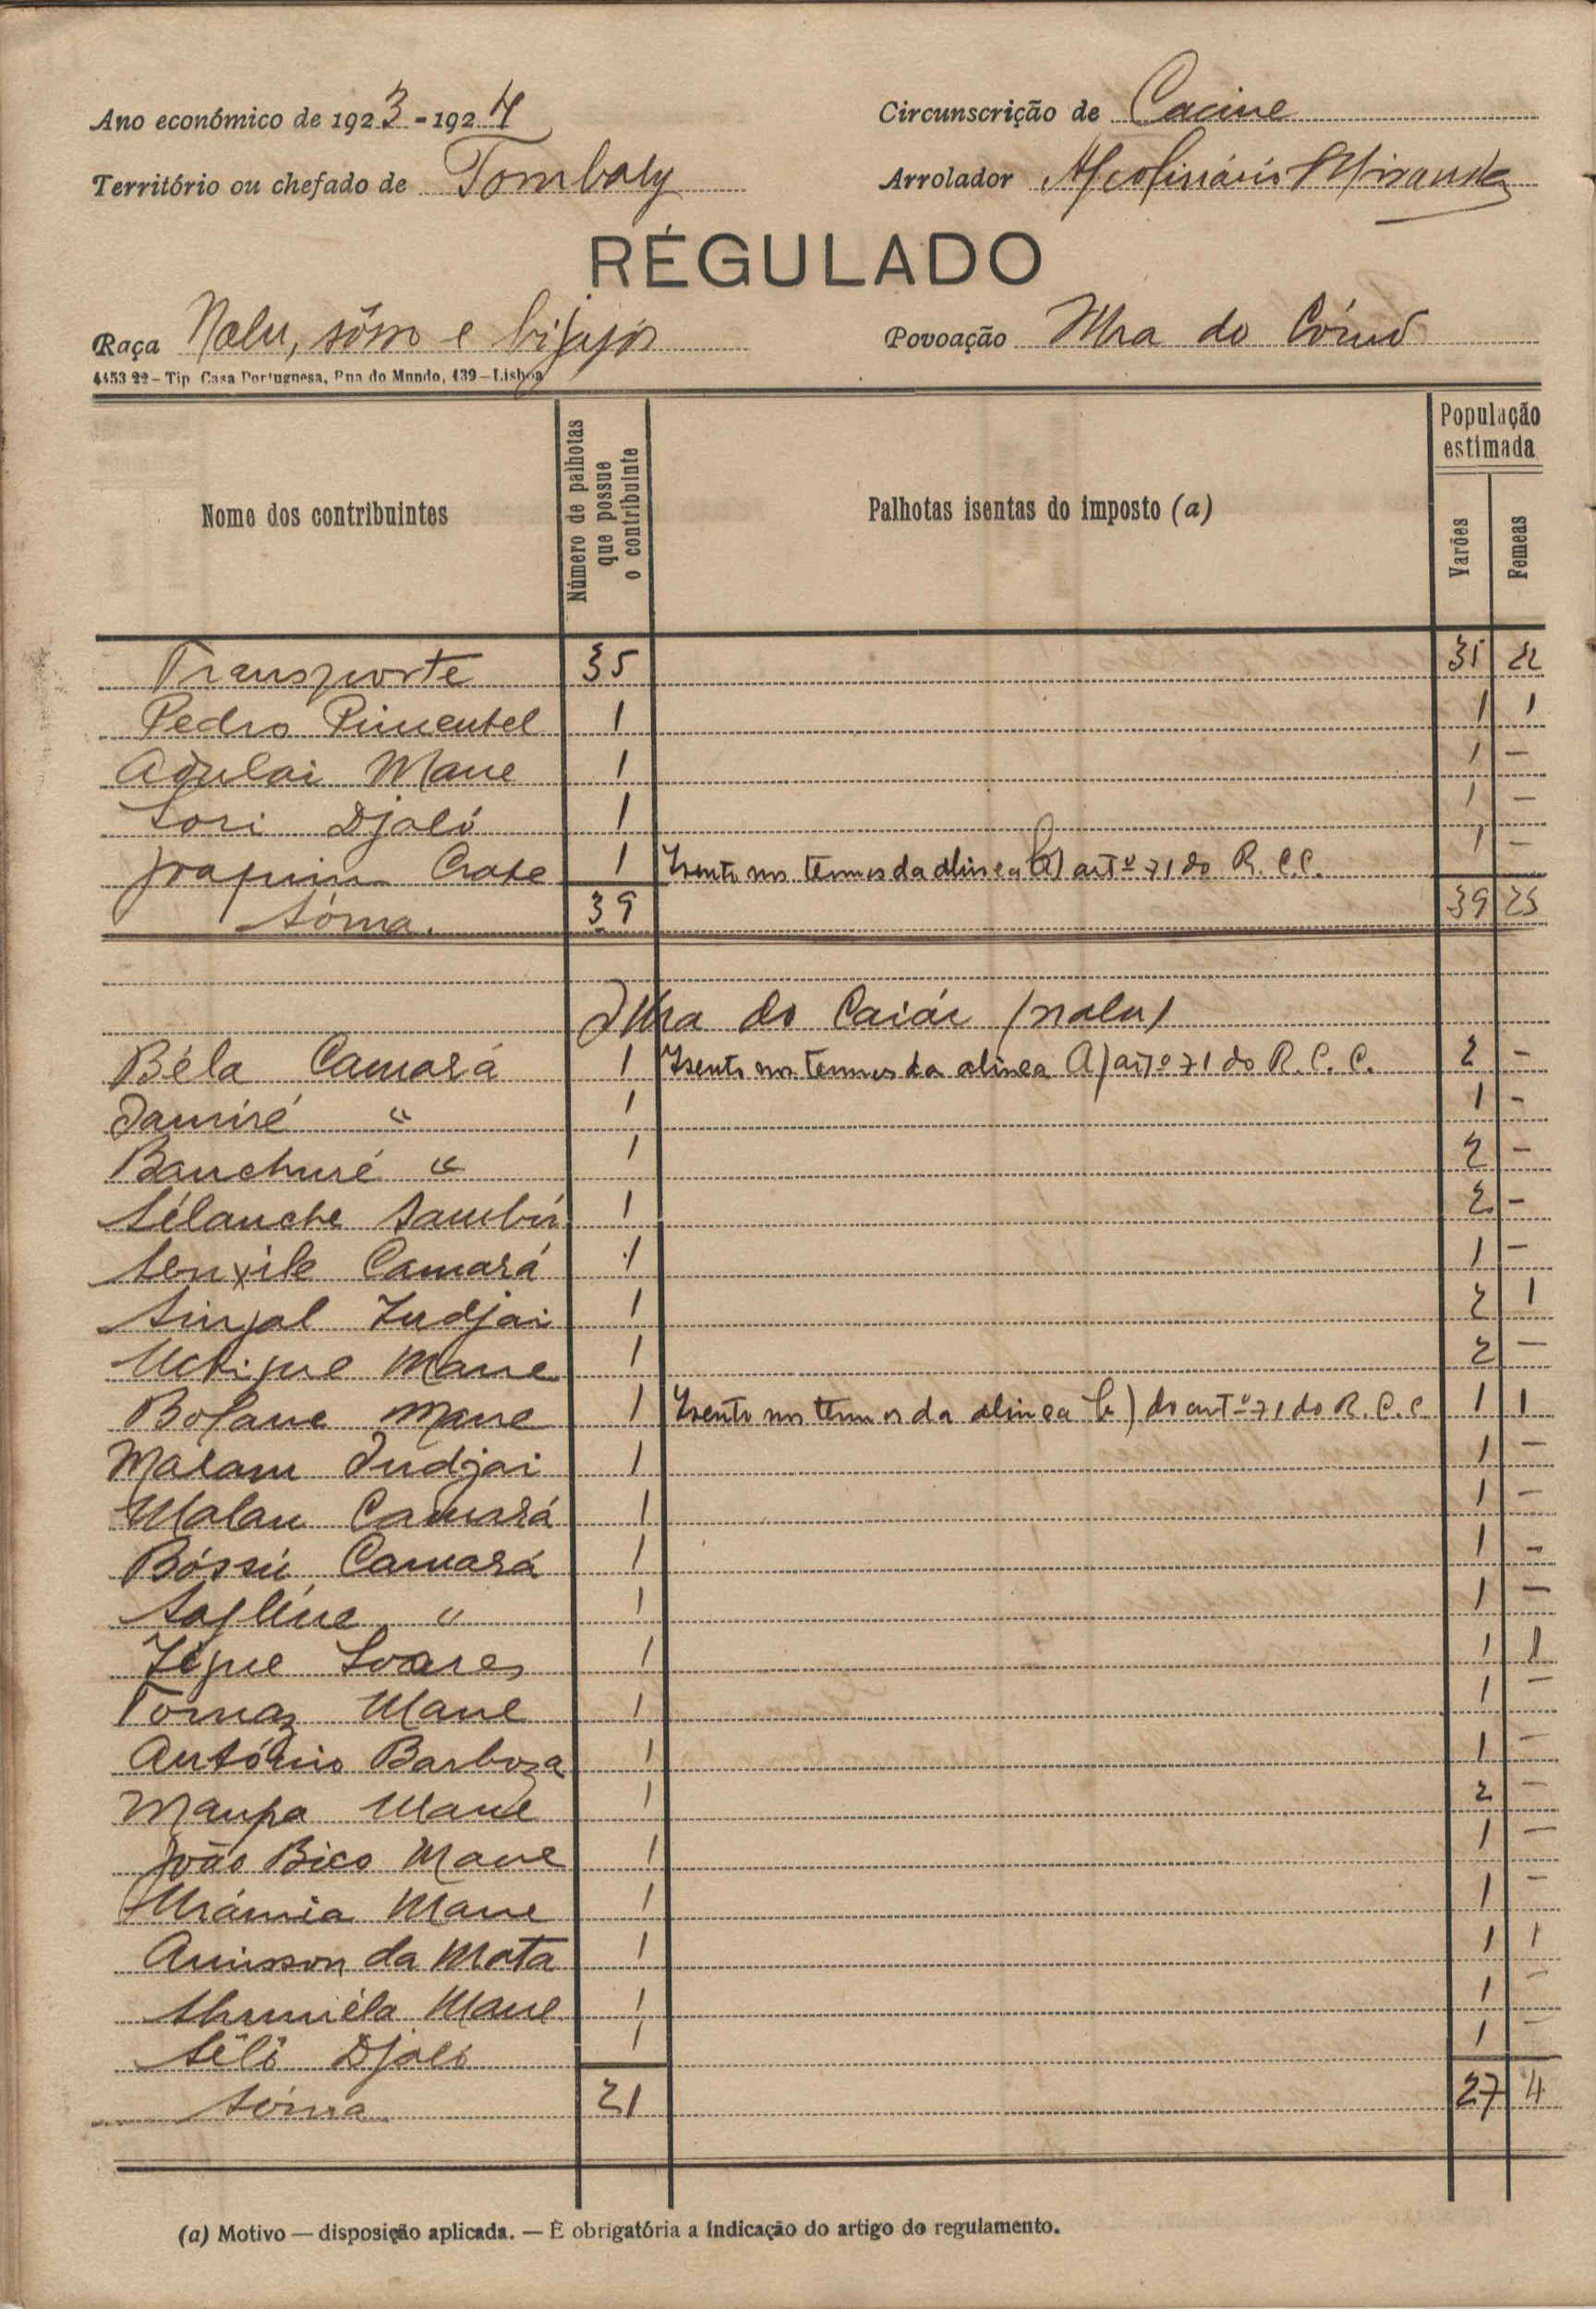 Ano económico de 1923-1924
Circunscrição de Cacine
Território ou chefado de Tombaly
Arrolador Apolinário Miranda
RÉGULADO
Raça Nalu, sôso e bijajós
Povoação Ilha do Cómo
4453 22 - Tip. Casa Portuguesa, Rua do Mundo, 139 - Lisboa
Nome dos contribuintes
Número de palhotas que possue o contribuinte
Palhotas isentas do imposto (a)
População estimada
Varões
Femeas
Transporte 35 35 22
Pedro Pimentel 1 1 1
Adulai Mane 1 1 -
Sori Djaló 1 1 -
Joaquim 1 Isento nos termos da alinea b) artº 71 do R. C. C. 1 -
Sôma 39 39 23
Ilha do Caiár (nalu)
Béla Camará 1 Isento nos termos da alinea A) artº 71 do R. C. C. 2 -
Jamiré " 1 1 -
Banchuré " 1 2 -
Sélanche Sambú 1 2 -
Camará 1 1 -
Indjai 1 2 1
Mane 1 2 -
Bofane Mane 1 Isento nos termos da alinea b) do artº 71 do R. C. C. 1 1
Malam Indjai 1 1 -
Malan Camará 1 1 -
Bóssú Camará 1 1 -
" 1 1 -
Soares 1 1 1
Tomaz Mane 1 1 -
António Barboza 1 1 -
Mane 1 2 -
João Bico Mane 1 1 -
Mane 1 1 -
da Mata 1 1 1
Mane 1 1 -
Séló Djaló 1 1 -
Sôma 21 27 4
(a) Motivo — disposição aplicada. — È obrigatória a indicação do artigo do regulamento.